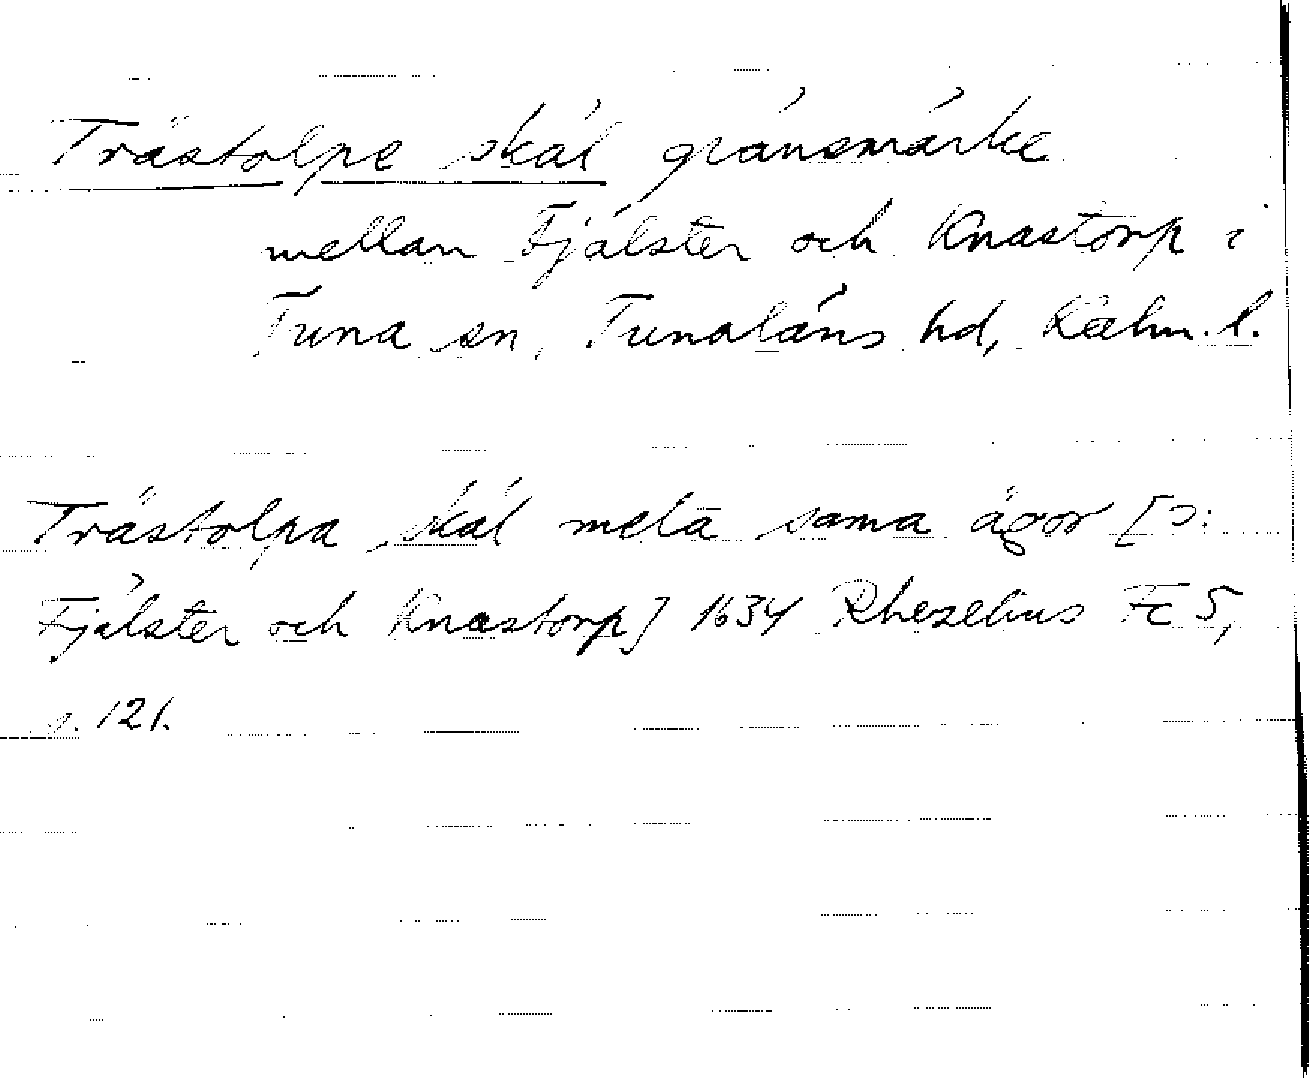 Trästolpe skäl gränsmärke
mellan Fjälster och Knastorp i
Tuna sn, Tunaläns hd, Kalm. l.
Trästolpa skäl mela sama ägor [ɔ:
Fjälster och Knastorp] 1634 Rhezelius Fc 5,
s. 121.